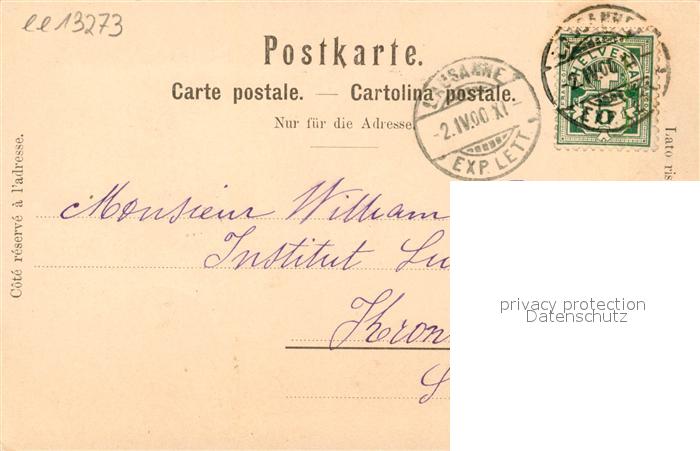 ee13273
Postkarte.
Carte postale. — Cartolina postale.
Nur für die Adresse.
LAUSANNE
-2.IV.00.XI-
EXP. LETT.
HELVETIA
Côté réservé à l'adresse.
Lato ris
Monsieur William
Institut Su
Kron
S
privacy protection
Datenschutz